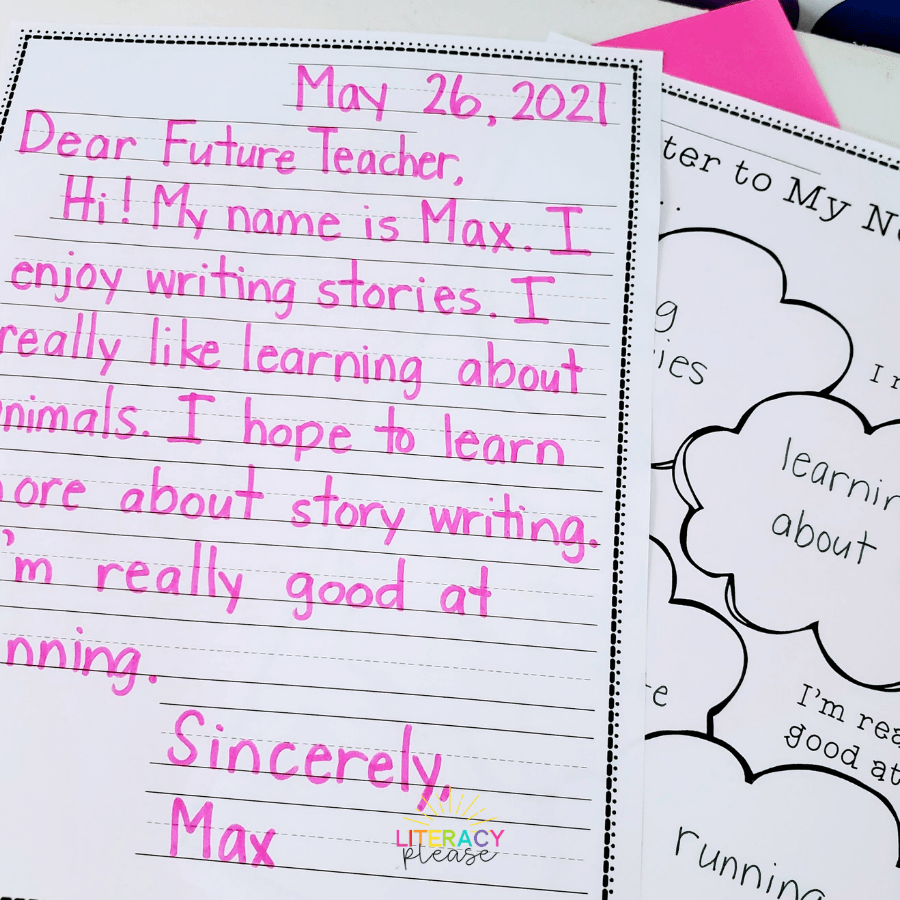 May 26, 2021
Dear Future Teacher,
Hi! My name is Max. I
enjoy writing stories. I
really like learning about
nimals. I hope to learn
ore about story writing.
'm really good at
nning.
Sincerely,
Max
LITERACY
please
ter to My N
...
g
ies
I r
learnin
about
e
I'm rea
good at
running